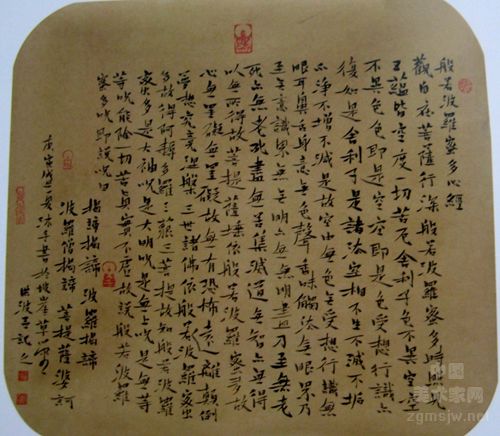 般若波羅蜜多心經
觀自在菩薩行深般若波羅蜜多時照見
五蘊皆空度一切苦厄舍利子色不異空空
不異色色即是空空即是色受想行識亦
復如是舍利子是諸法空相不生不滅不垢
不淨不增不減是故空中無色無受想行識無
眼耳鼻舌身意無色聲香味觸法無眼界乃
至無意識界無無明亦無無明盡乃至無老
死亦無老死盡無苦集滅道無智亦無得
以無所得故菩提薩埵依般若波羅蜜多故
心無罣礙無罣礙故無有恐怖遠離顛倒
夢想究竟涅槃三世諸佛依般若波羅蜜
多故得阿耨多羅三藐三菩提故知般若波羅
蜜多是大神咒是大明咒是無上咒是無等
等咒能除一切苦真實不虛故說般若波羅
蜜多咒即說咒曰
揭諦揭諦 波羅揭諦
波羅僧揭諦 菩提薩婆訶
庚寅
中国
美术家网
zgmsjw.com